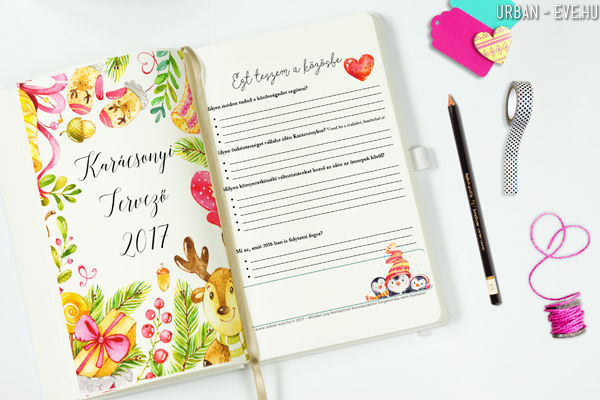 URBAN - EVE.HU
Karácsonyi
Tervező
2017
Ezt teszem a közösbe
Milyen módon tudod a közösségedet segíteni?
Milyen önkéntességet vállalsz idén Karácsonykor?
Milyen környezetkímélő változtatásokat hozol az idén az ünnepek körül?
Mi az, amit 2018-ban is folytatni fogsz?
www.urban-eve.hu © 2017 - Minden jog fenntartva!